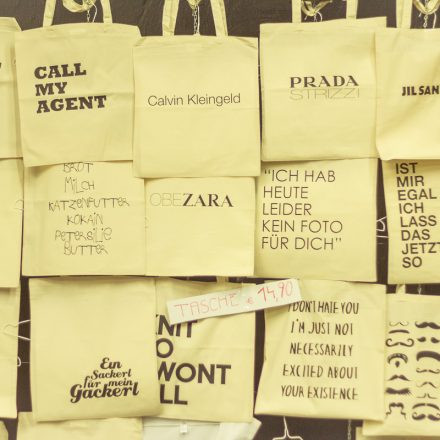 CALL
MY
AGENT
Calvin Kleingeld
PRADA
STRIZZI
JIL SAN
BROT
MILCH
KATZENFUTTER
KOKAIN
PETERSILIE
BUTTER
OBEZARA
"ICH HAB
HEUTE
LEIDER
KEIN FOTO
FÜR DICH"
IST
MIR
EGAL
ICH
LASS
DAS
JETZT
SO
TASCHE € 14,90
Ein
Sackerl
für mein
Gackerl
WONT
I DON'T HATE YOU
I'M JUST NOT
NECESSARILY
EXCITED ABOUT
YOUR EXISTENCE